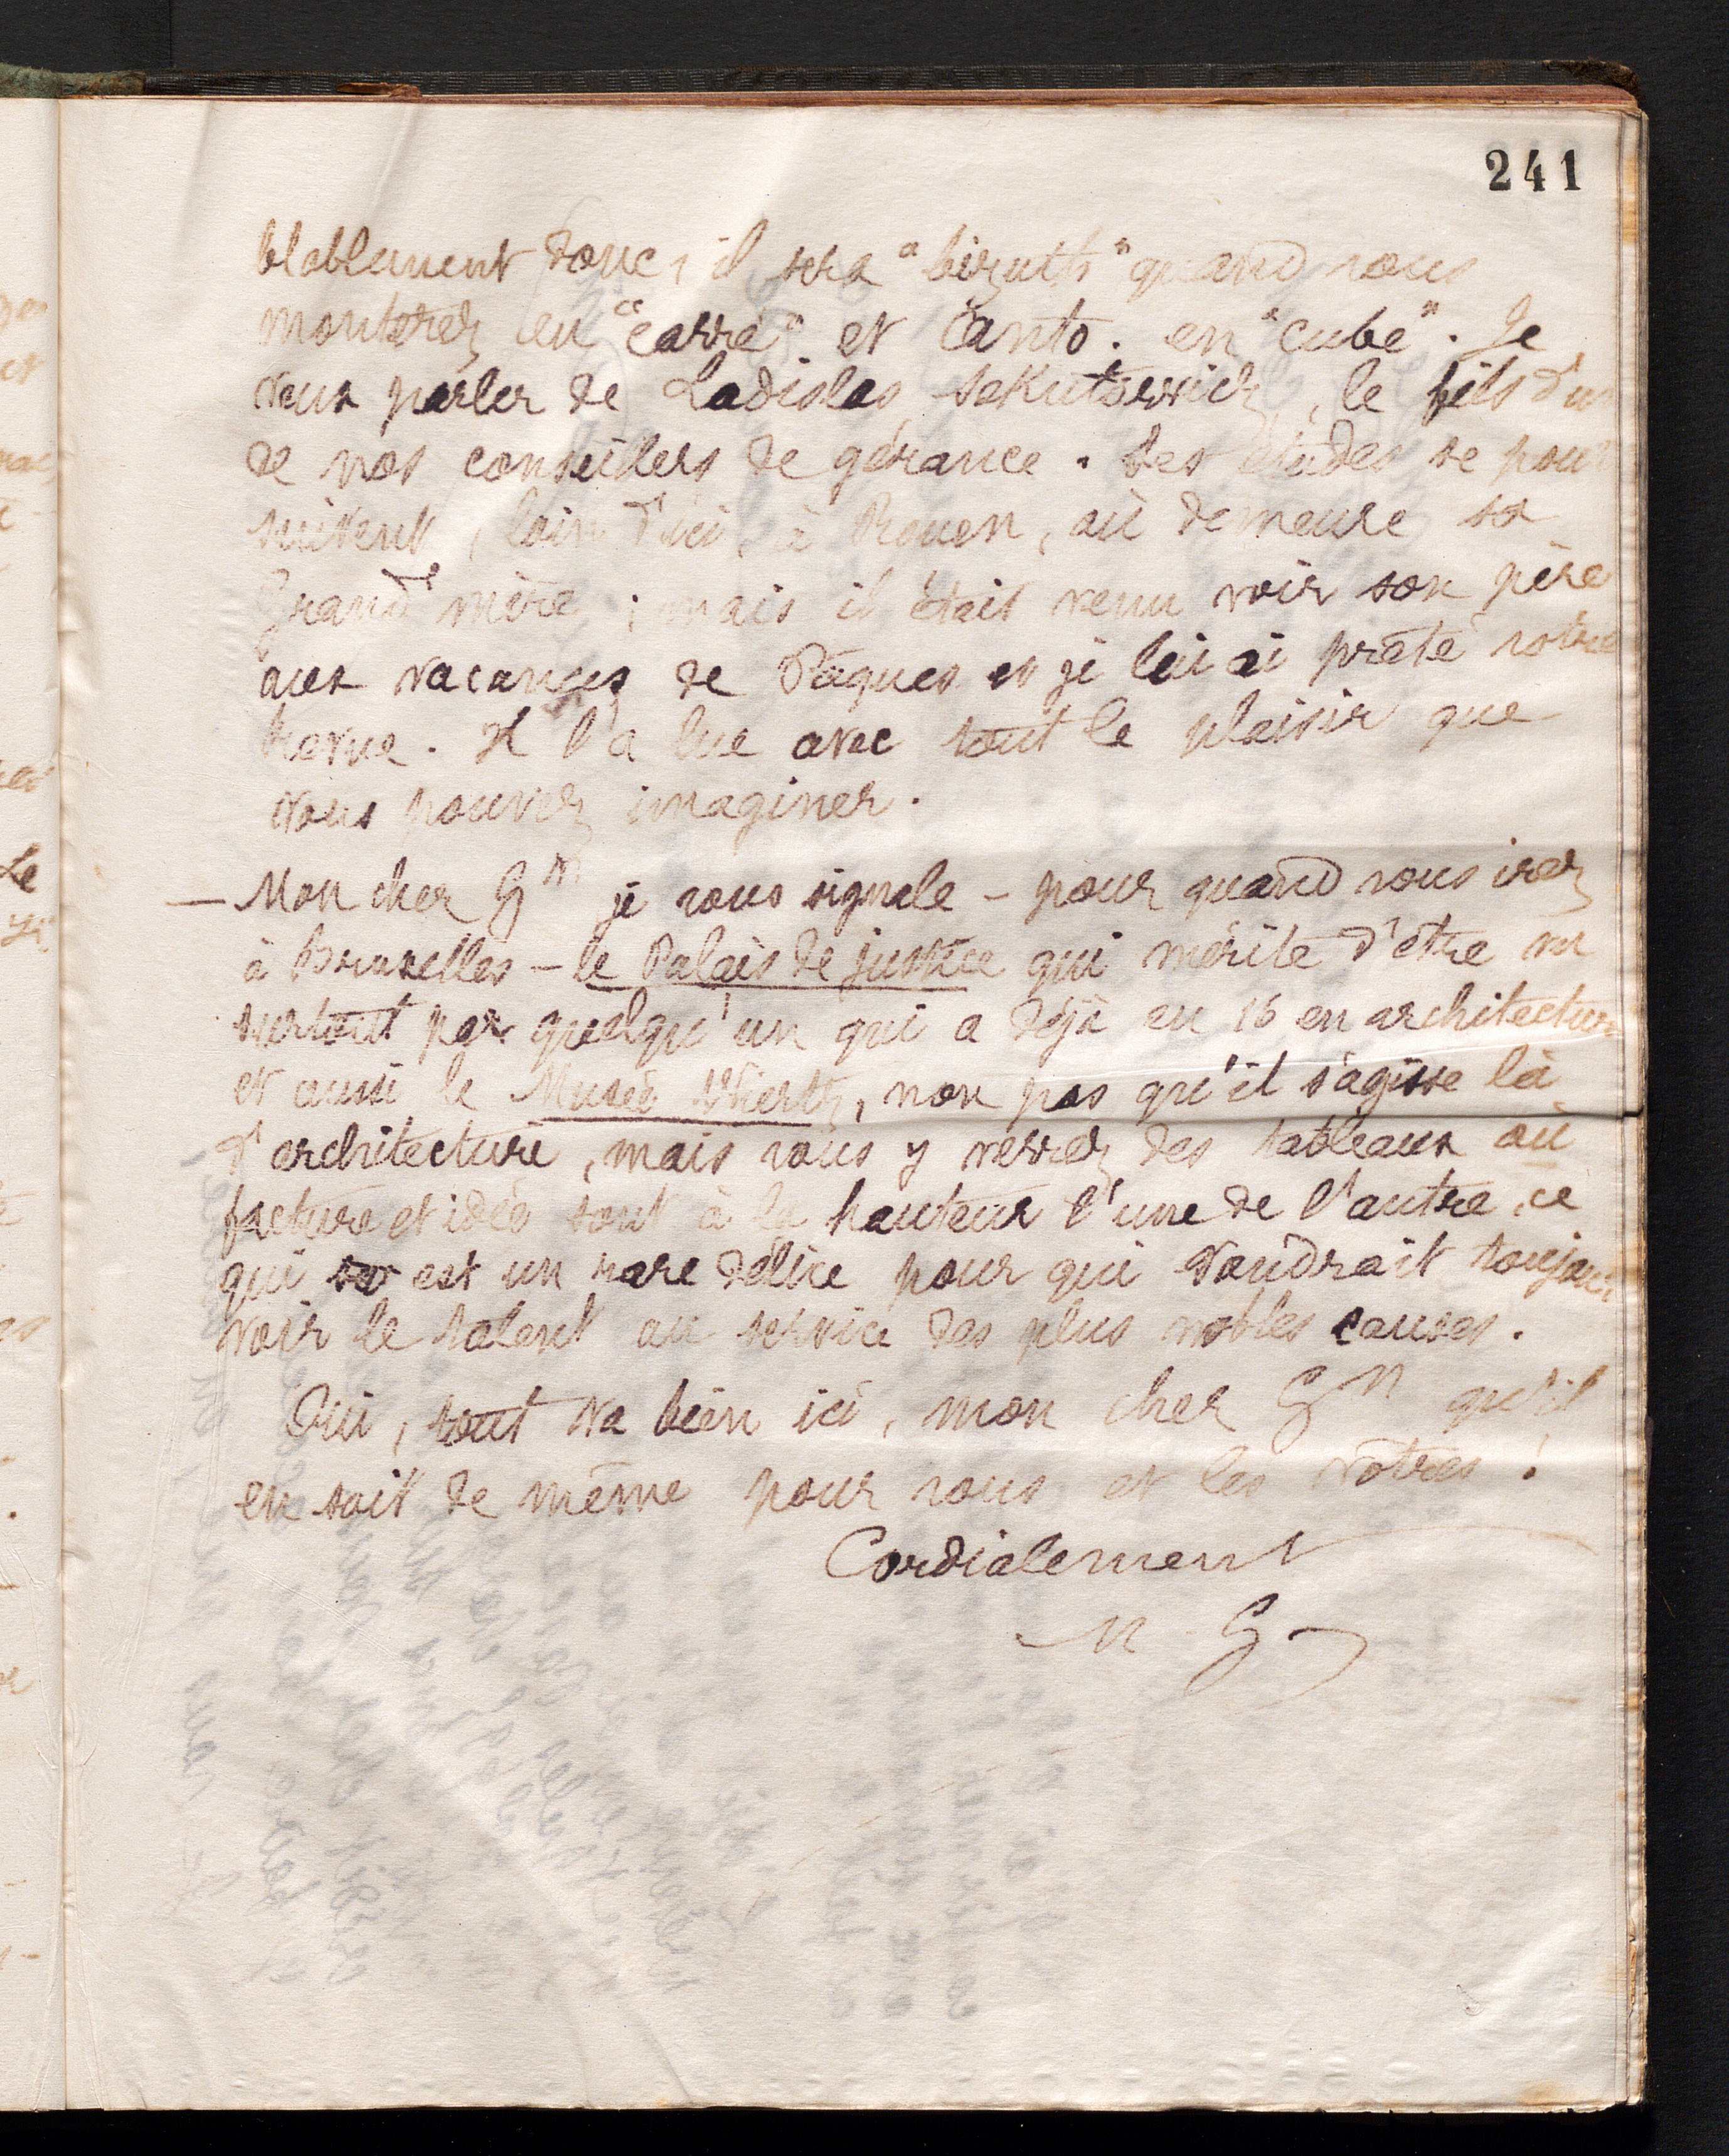 241
blablement donc, il sera "bizuth" quand vous
monterez en "carré" et Canto. en "cube". Je
veux parler de Ladislas Sekutowicz, le fils d'un
de nos conseillers de gérance. Ses études se pour
suivent, loin d'ici, à Rouen, où demeure sa
Grand'mère ; mais il était venu voir son père
aux vacances de Pâques et je lui ai prêté votre
Revue. Il l'a lue avec tout le plaisir que
vous pouvez imaginer.
— Mon cher Gⁿ je vous signale - pour quand vous irez
à Bruxelles - le Palais de justice qui mérite d'être vu
surtout par quelqu'un qui a déjà eu 16 en architecture
et aussi le Musée Wiertz, non pas qu'il s'agisse là
d'architecture, mais vous y verrez des tableaux où
facture et idée sont à la hauteur l'une de l'autre, ce
qui est un rare délice pour qui voudrait toujours
voir le talent au service des plus nobles causes.
Oui, tout va bien ici, mon cher Gⁿ qu'il
en soit de même pour vous et les vôtres !
Cordialement
N G
Le